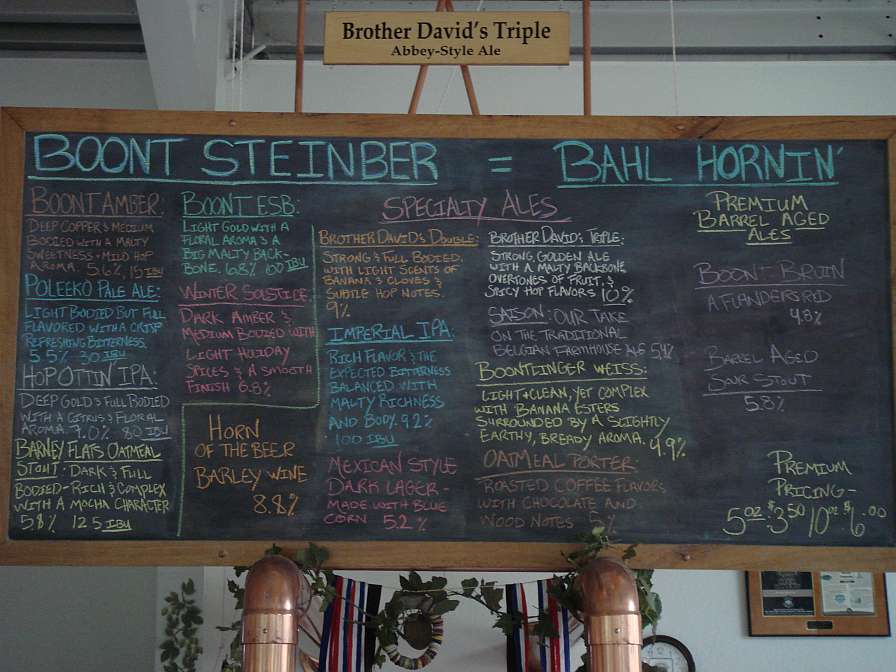 Brother David's Triple
Abbey-Style Ale
BOONT STEINBER = BAHL HORNIN'
BOONT AMBER:
DEEP COPPER & MEDIUM
BODIED WITH A MALTY
SWEETNESS & MILD HOP
AROMA. 5.6%, 15 IBU
POLEEKO PALE ALE:
LIGHT BODIED BUT FULL
FLAVORED WITH A CRISP
REFRESHING BITTERNESS.
5.5% 30 IBU
HOP OTTIN' IPA:
DEEP GOLD & FULL BODIED
WITH A CITRUS & FLORAL
AROMA. 7.0% 80 IBU
BARNEY FLATS OATMEAL
STOUT: DARK & FULL
BODIED - RICH & COMPLEX
WITH A MOCHA CHARACTER
5.8% 12.5 IBU
BOONT ESB:
LIGHT GOLD WITH A
FLORAL AROMA & A
BIG MALTY BACK-
BONE. 6.8% 100 IBU
WINTER SOLSTICE:
DARK AMBER &
MEDIUM BODIED WITH
LIGHT HOLIDAY
SPICES & A SMOOTH
FINISH 6.8%
HORN
OF THE BEER
BARLEY WINE
8.8%
SPECIALTY ALES
BROTHER DAVID'S DOUBLE:
STRONG & FULL BODIED.
WITH LIGHT SCENTS OF
BANANA & CLOVES &
SUBTLE HOP NOTES.
9%
IMPERIAL IPA:
RICH FLAVOR & THE
EXPECTED BITTERNESS
BALANCED WITH
MALTY RICHNESS
AND BODY. 9.2%
100 IBU
MEXICAN STYLE
DARK LAGER -
MADE WITH BLUE
CORN 5.2%
BROTHER DAVID'S TRIPLE:
STRONG, GOLDEN ALE
WITH A MALTY BACKBONE
OVERTONES OF FRUIT, &
SPICY HOP FLAVORS 10%
SAISON: OUR TAKE
ON THE TRADITIONAL
BELGIAN FARMHOUSE 5.4%
BOONTLINGER WEISS:
LIGHT & CLEAN, YET COMPLEX
WITH BANANA ESTERS
SURROUNDED BY A SLIGHTLY
EARTHY, BREADY AROMA. 4.9%
OATMEAL PORTER
- ROASTED COFFEE FLAVORS
WITH CHOCOLATE AND
WOOD NOTES %
PREMIUM
BARREL AGED
ALES
BOONT BRUIN
A FLANDERS RED
4.8%
BARREL AGED
SOUR STOUT
5.8%
PREMIUM
PRICING -
5oz - $3.50 10oz $6.00